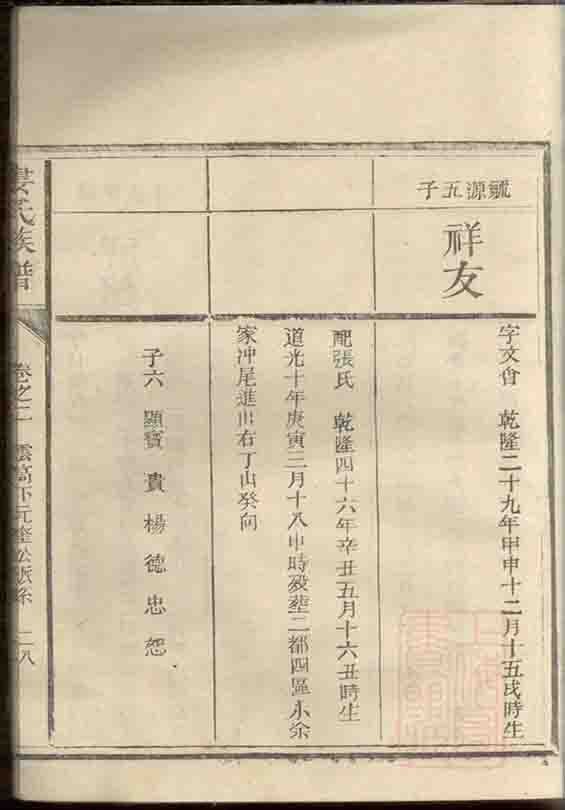 毓源五子
祥友
字文會 乾隆二十九年甲申十二月十五戌時生
配張氏 乾隆四十六年辛丑五月十六丑時生
道光十年庚寅三月十八申時歿塟二都四區木余
家冲尾進出右丁山癸向
子六 顯寶 貴 楊 德 忠 恕
婁氏族譜
卷之二 雲高下元奎公派系 二八